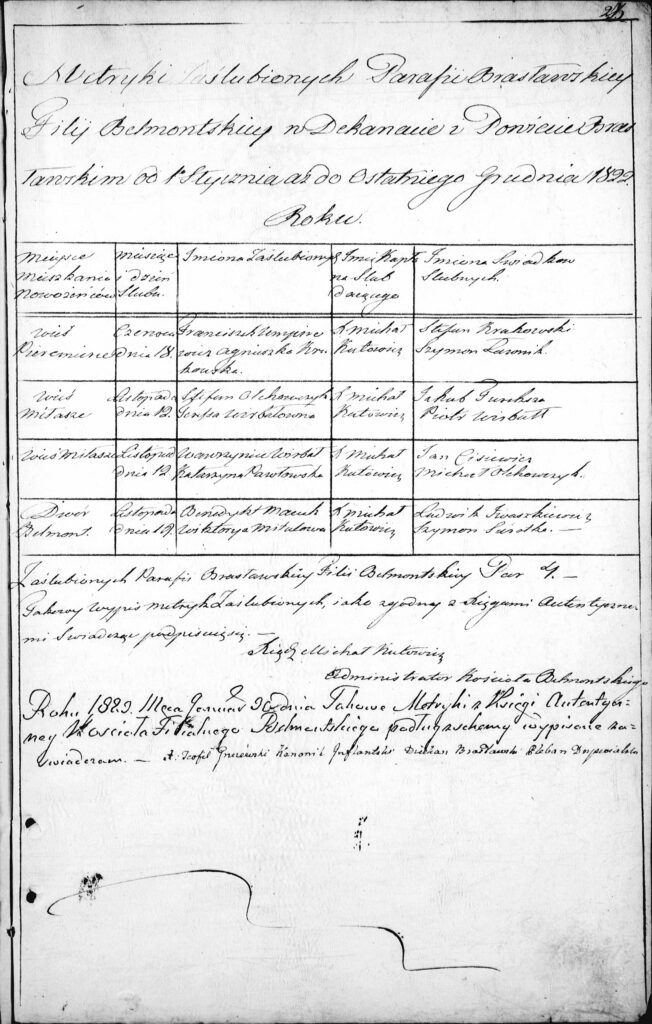 Metryki Zaślubionych Parafii Brasławskiey
Filij Belmontskiey w Dekanacie i Powiecie Bras
ławskim od 1º Stycznia aż do Ostatniego Grudnia 1822.
Roku.
Mieysce Mieszkania Nowożeńców
Miesiąc i dzień Ślubu.
Imiona Zaślubionych
X Imie Kapła na Ślub daiącego
Imiona Świadkow Ślubnych.
wieś
Czerwca dnia 18.
Franciszek Agnieszka
X Michał Kutowicz
Stefan Krakowski
Szymon
wieś Milasze
Listopada dnia 12.
Stefan Olchowczyk
X Michał Kutowicz
Jakub
Piotr Wirbałł
wieś Milasze
Listopad dnia 12
Wawrzyniec Wirbał Katarzyna Pawłowska
X Michał Kutowicz
Jan Cisiewicz
Michał Olchowczyk.
Dwór Belmont.
Listopada dnia 19.
Benedykt Wiktorya
X Michał Kutowicz
Ludwik Iwaszkiewicz
Szymon
Zaślubionych Parafii Brasławskiey Filii Belmontskiey Par 4. —
Takowy wypis metryk Zaślubionych, iako zgodny z Xięgami Autentyczne
mi Świadcząc podpisuię się —
Xiądz Michał Kutowicz
Administrator Kościoła Belmontskiego
Roku 1823. Mca Januar 30 dnia Takowe Metryki z Xsięgi Autentycz-
ney Kościoła Filialnego Belmontskiego podług schemy wypisane za-
swiadczam. — X. Teofil Kanonik Inflantski Dziekan Brasławski Pleban